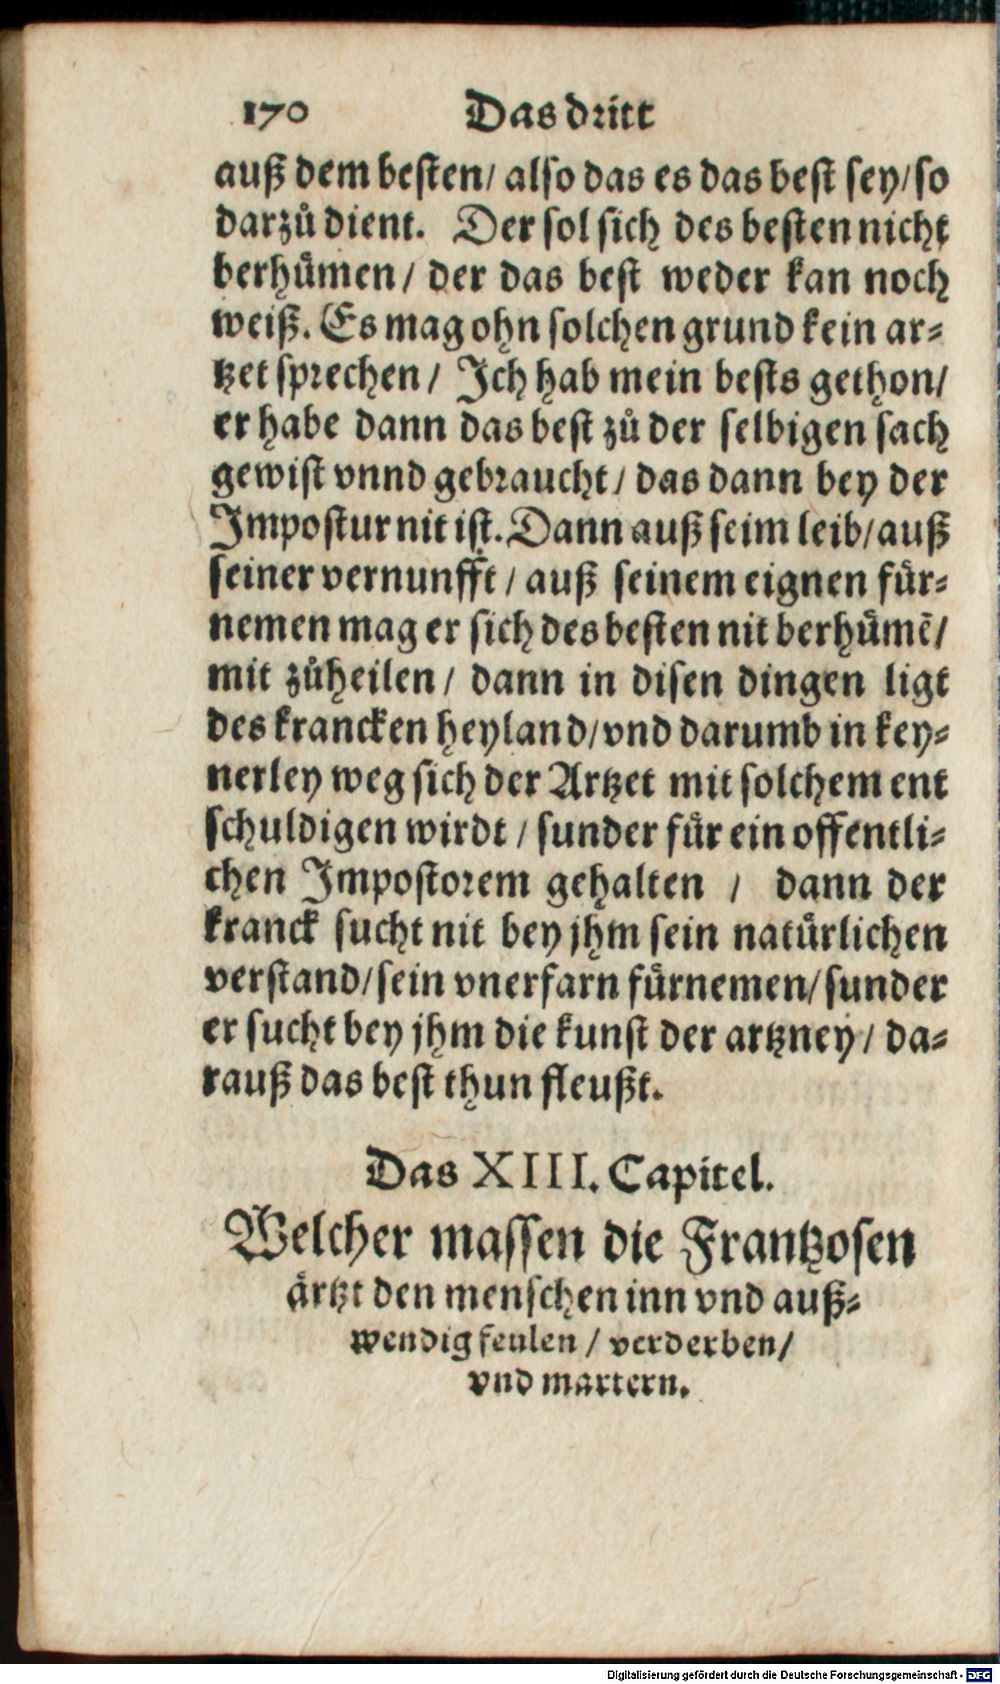 170 Das dritt
auß dem besten/ also das es das best sey/ so
darzuͦ dient. Der sol sich des besten nicht
berhuͤmen/ der das best weder kan noch
weiß. Es mag ohn solchen grund kein ar-
tzet sprechen/ Ich hab mein bests gethon/
er habe dann das best zuͦ der selbigen sach
gewist vnnd gebraucht/ das dann bey der
Impostur nit ist. Dann auß seim leib/ auß
seiner vernunfft/ auß seinem eignen fuͤr-
nemen mag er sich des besten nit berhuͤmẽ/
mit zuͦheilen/ dann in disen dingen ligt
des krancken heyland/ vnd darumb in key-
nerley weg sich der Artzet mit solchem ent
schuldigen wirdt/ sunder fuͤr ein offentli-
chen Impostorem gehalten/ dann der
kranck sucht nit bey jhm sein natuͤrlichen
verstand/ sein vnerfarn fuͤrnemen/ sunder
er sucht bey jhm die kunst der artzney/ da-
rauß das best thun fleußt.
Das XIII. Capitel.
Welcher massen die Frantzosen
aͤrtzt den menschen inn vnd auß-
wendig feulen/ verderben/
vnd martern.
Digitalisierung gefördert durch die Deutsche Forschungsgemeinschaft - DFG